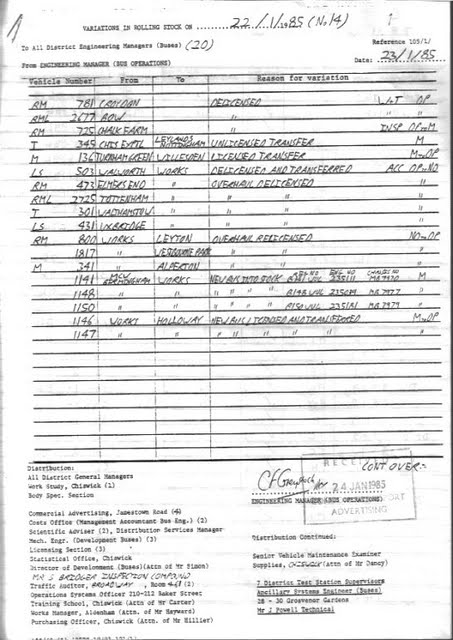 VARIATIONS IN ROLLING STOCK ON 22/1/1985 (No 14)
To All District Engineering Managers (Buses) (20)
Reference 109/1/
From ENGINEERING MANAGER (BUS OPERATIONS)
Date: 23/1/85
Vehicle Number From To Reason for variation
RM 781 CROYDON DELICENSED W→T OP
RML 2677 BOW " "
RM 725 CHALK FARM " INSP OP→M
T 345 CHIS EXPTL LEYLANDS NOTTINGHAM UNLICENSED TRANSFER M
M 136 TURNHAM GREEN WILLESDEN LICENSED TRANSFER M→OP
LS 503 WALWORTH WORKS DELICENSED AND TRANSFERRED ACC OP→NO
RM 473 ELMERS END " OVERHAUL DELICENSED "
RML 2725 TOTTENHAM " " "
T 301 WALTHAMSTOW " " "
LS 431 UXBRIDGE " " "
RM 800 WORKS LEYTON OVERHAUL RELICENSED NO→OP
1817 " WESTBOURNE PARK " "
M 341 " ALPERTON " "
1141 MCW BIRMINGHAM WORKS NEW BUS INTO STOCK REG NO ENG NO CHASSIS NO M
1148 " " " " " " B148 WUL "
1150 " " " " " " B150 WUL MB 7979 "
1146 WORKS HOLLOWAY NEW BUS LICENSED AND TRANSFERRED M→OP
1147 " " " " " " "
CONT OVER:-
Distribution:
All District General Managers
Work Study, Chiswick (2)
Body Spec. Section
RECEIVED
24 JAN 1985
ADVERTISING
ENGINEERING MANAGER (BUS OPERATIONS)
Commercial Advertising, Jamestown Road (4)
Costs Office (Management Accountant Bus Eng.) (2)
Scientific Adviser (2), Distribution Services Manager
Mech. Engr. (Development Buses) (3)
Licensing Section (3)
Statistical Office, Chiswick
Director of Development (Buses)(Attn of Mr Simon)
MR S BRIDGER INSPECTION COMPOUND
Traffic Auditor, BROADWAY, Room
Operations Systems Officer 210-212 Baker Street
Training School, Chiswick (Attn of Mr Carter)
Works Manager, Aldenham (Attn of Mr Hayward)
Purchasing Officer, Chiswick (Attn of Mr Hillier)
Distribution Continued:
Senior Vehicle Maintenance Examiner
Supplies, CHISWICK (Attn of Mr Dancy)
7 District Test Station Supervisors
Ancillary Systems Engineer (Buses)
28 - 30 Grosvenor Gardens
Mr J Powell Technical